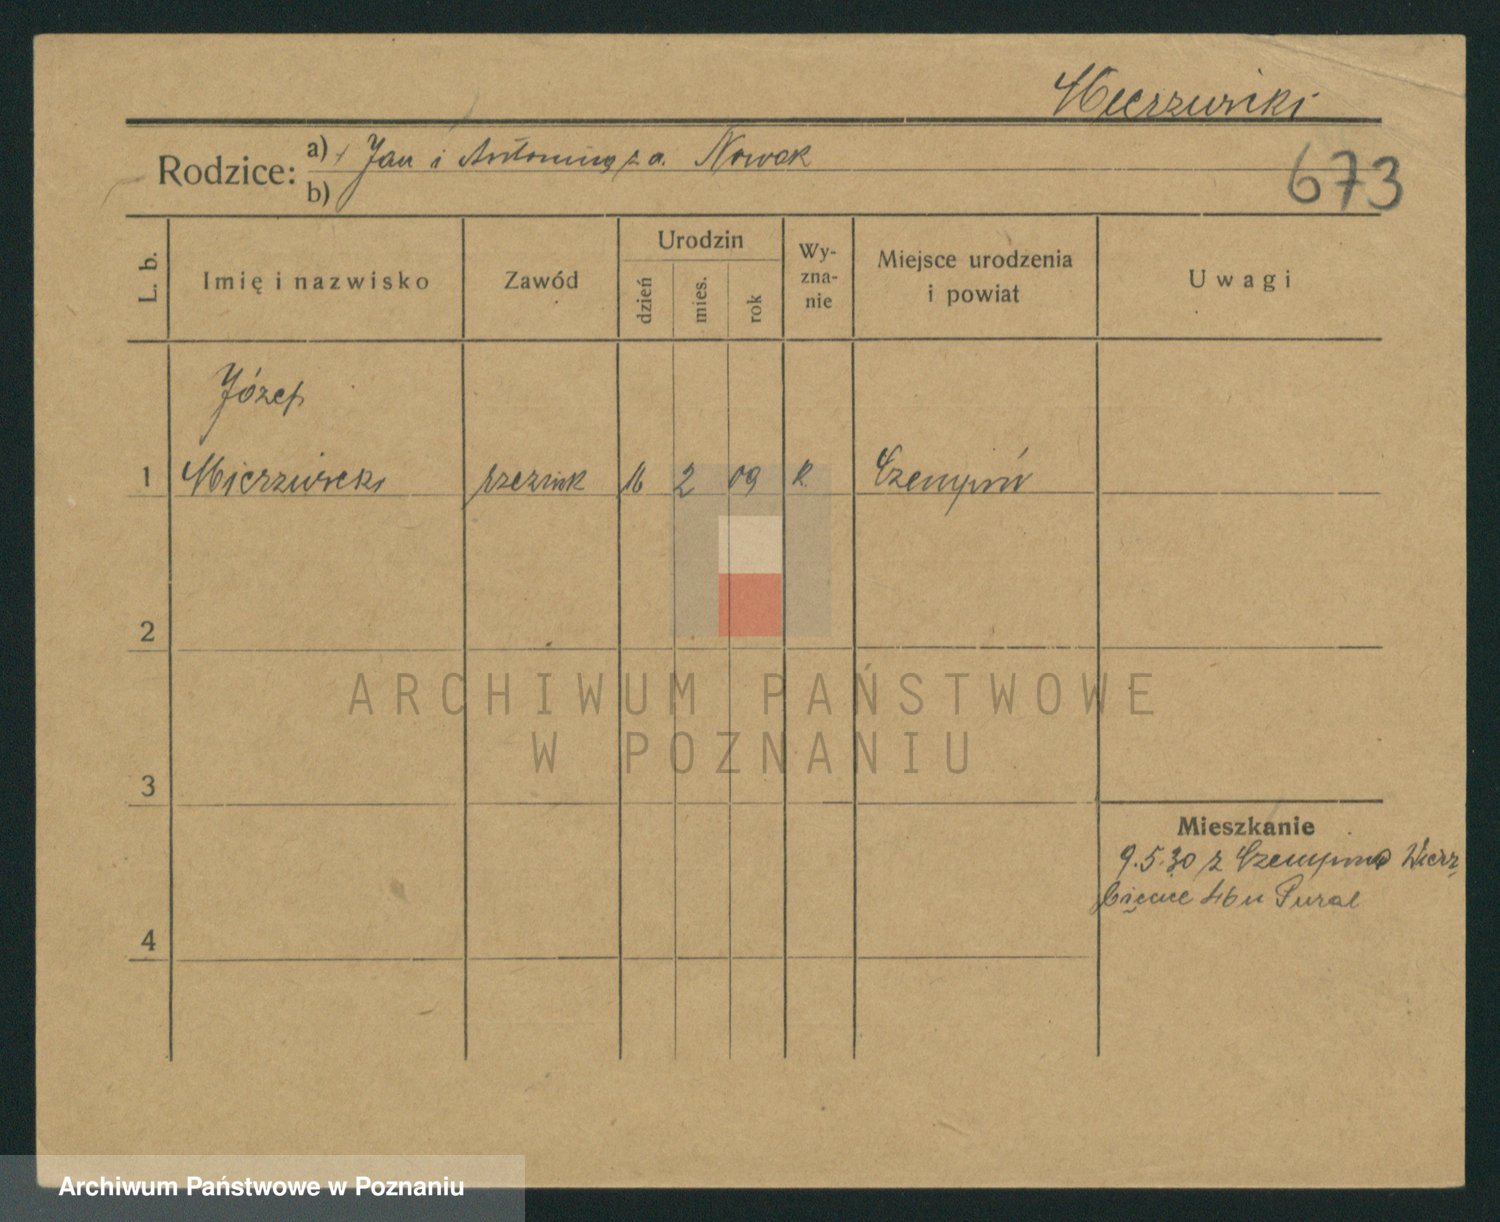 Mierzwicki
673
Rodzice: a) + Jan i Antonina z d. Nowak
b)
L. b.
Imię i nazwisko
Zawód
Urodzin
dzień
mies.
rok
Wy-
zna-
nie
Miejsce urodzenia
i powiat
Uwagi
Józef
1 Mierzwicki rzeźnik 16 2 09 k. Czempiń
2
3
4
Mieszkanie
9.5.30 z Czempinia Wierz
bięcice 46 u
ARCHIWUM PAŃSTWOWE
W POZNANIU
Archiwum Państwowe w Poznaniu